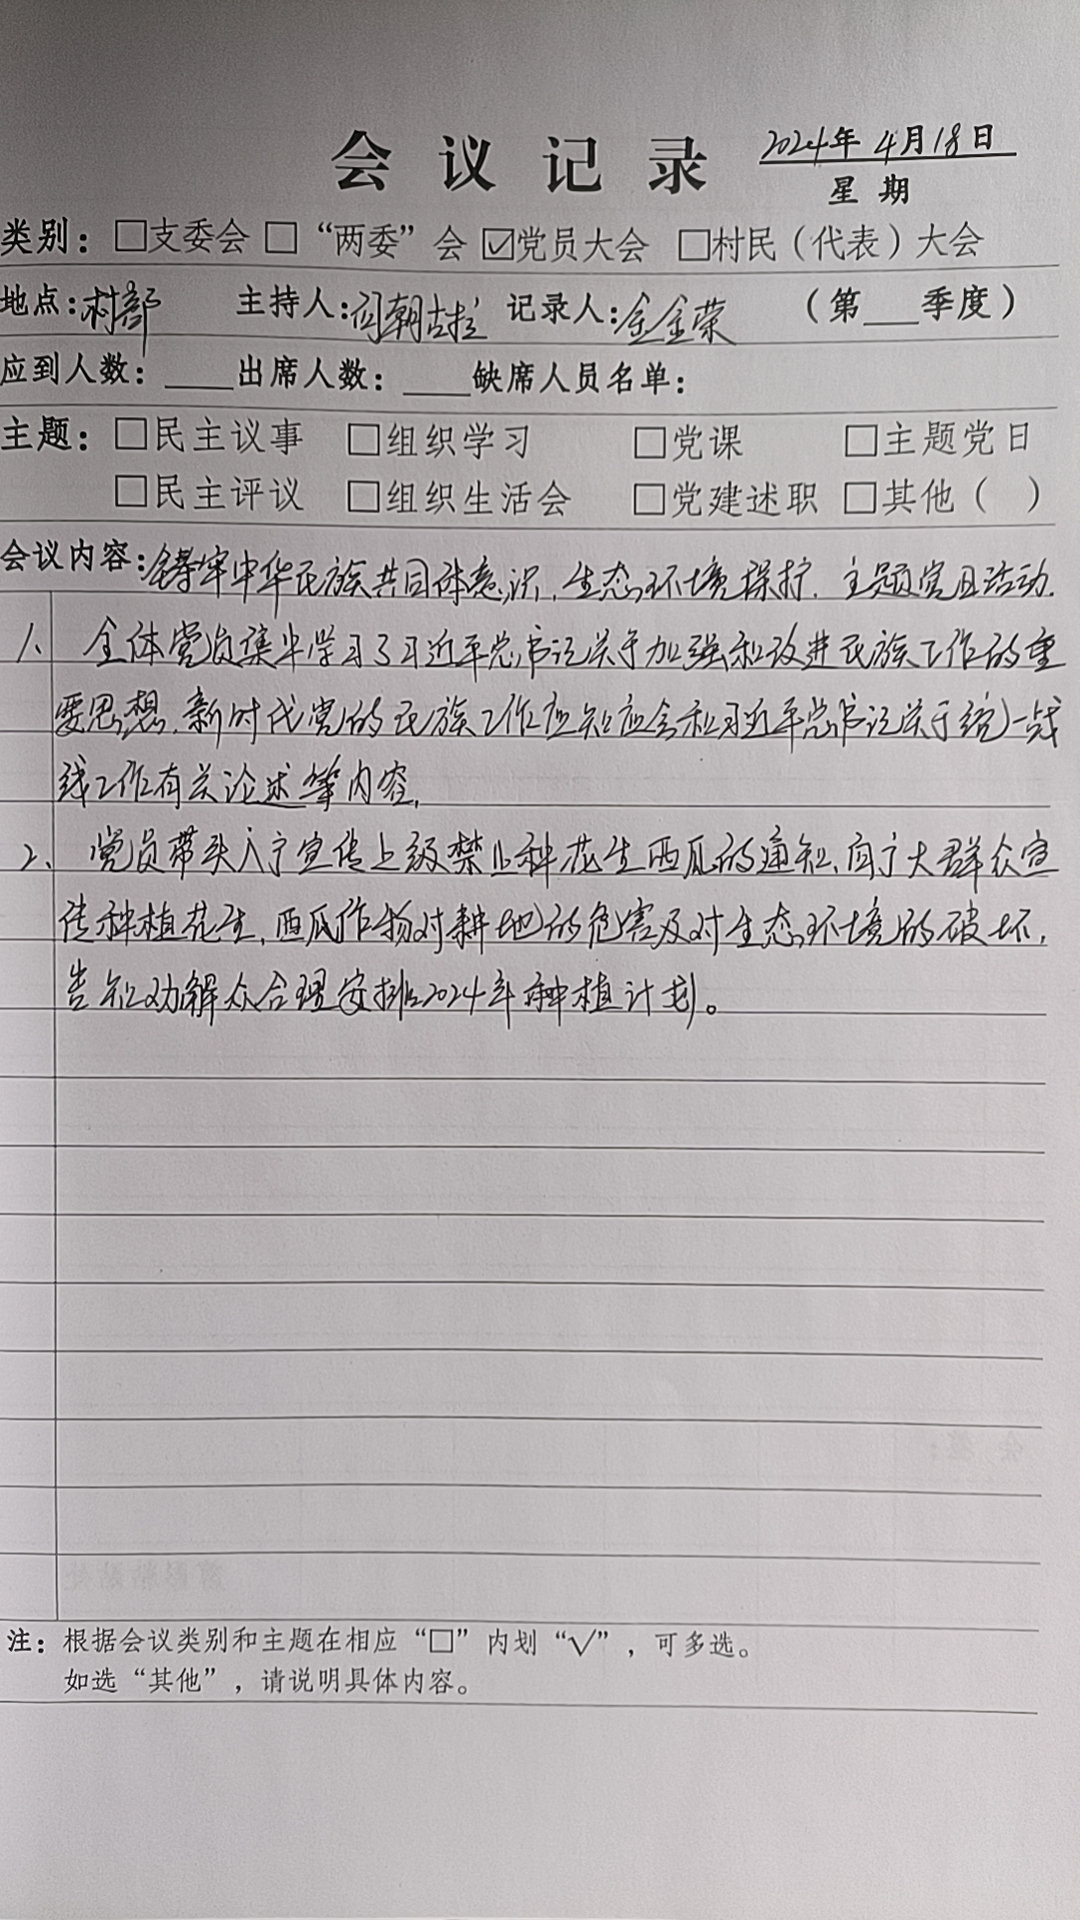 会议记录 2024年4月18日
星期
类别：□支委会 □“两委”会 ☑党员大会 □村民（代表）大会
地点：村部 主持人：闫朝古拉 记录人：金金荣 （第___季度）
应到人数：____出席人数：____缺席人员名单：
主题：□民主议事 □组织学习 □党课 □主题党日
□民主评议 □组织生活会 □党建述职 □其他（ ）
会议内容：铸牢中华民族共同体意识，生态环境保护．主题党日活动．
1、 全体党员集中学习了习近平总书记关于加强和改进民族工作的重
要思想．新时代党的民族工作应知应会和习近平总书记关于统一战
线工作有关论述等内容．
2、 党员带头入户宣传上级禁止种花生西瓜的通知、向广大群众宣
传种植花生、西瓜作物对耕地的危害及对生态环境的破坏，
告知劝解众合理安排2024年种植计划。
注：根据会议类别和主题在相应“□”内划“√”，可多选。
如选“其他”，请说明具体内容。